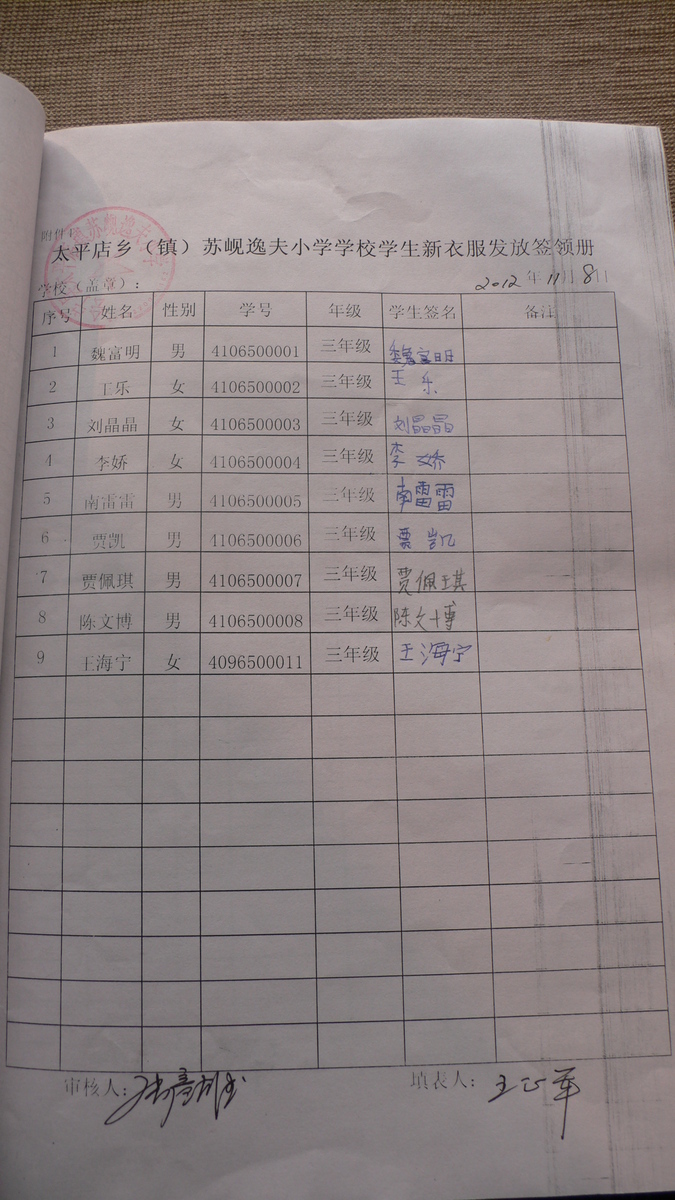 附件1
太平店乡（镇）苏岘逸夫小学学校学生新衣服发放签领册
学校（盖章）： 2012年11月8日
序号 姓名 性别 学号 年级 学生签名 备注
1 魏富明 男 4106500001 三年级 魏富明
2 王乐 女 4106500002 三年级 王乐
3 刘晶晶 女 4106500003 三年级 刘晶晶
4 李娇 女 4106500004 三年级 李娇
5 南雷雷 男 4106500005 三年级 南雷雷
6 贾凯 男 4106500006 三年级 贾凯
7 贾佩琪 男 4106500007 三年级 贾佩琪
8 陈文博 男 4106500008 三年级 陈文博
9 王海宁 女 4096500011 三年级 王海宁
审核人： 填表人：王正军